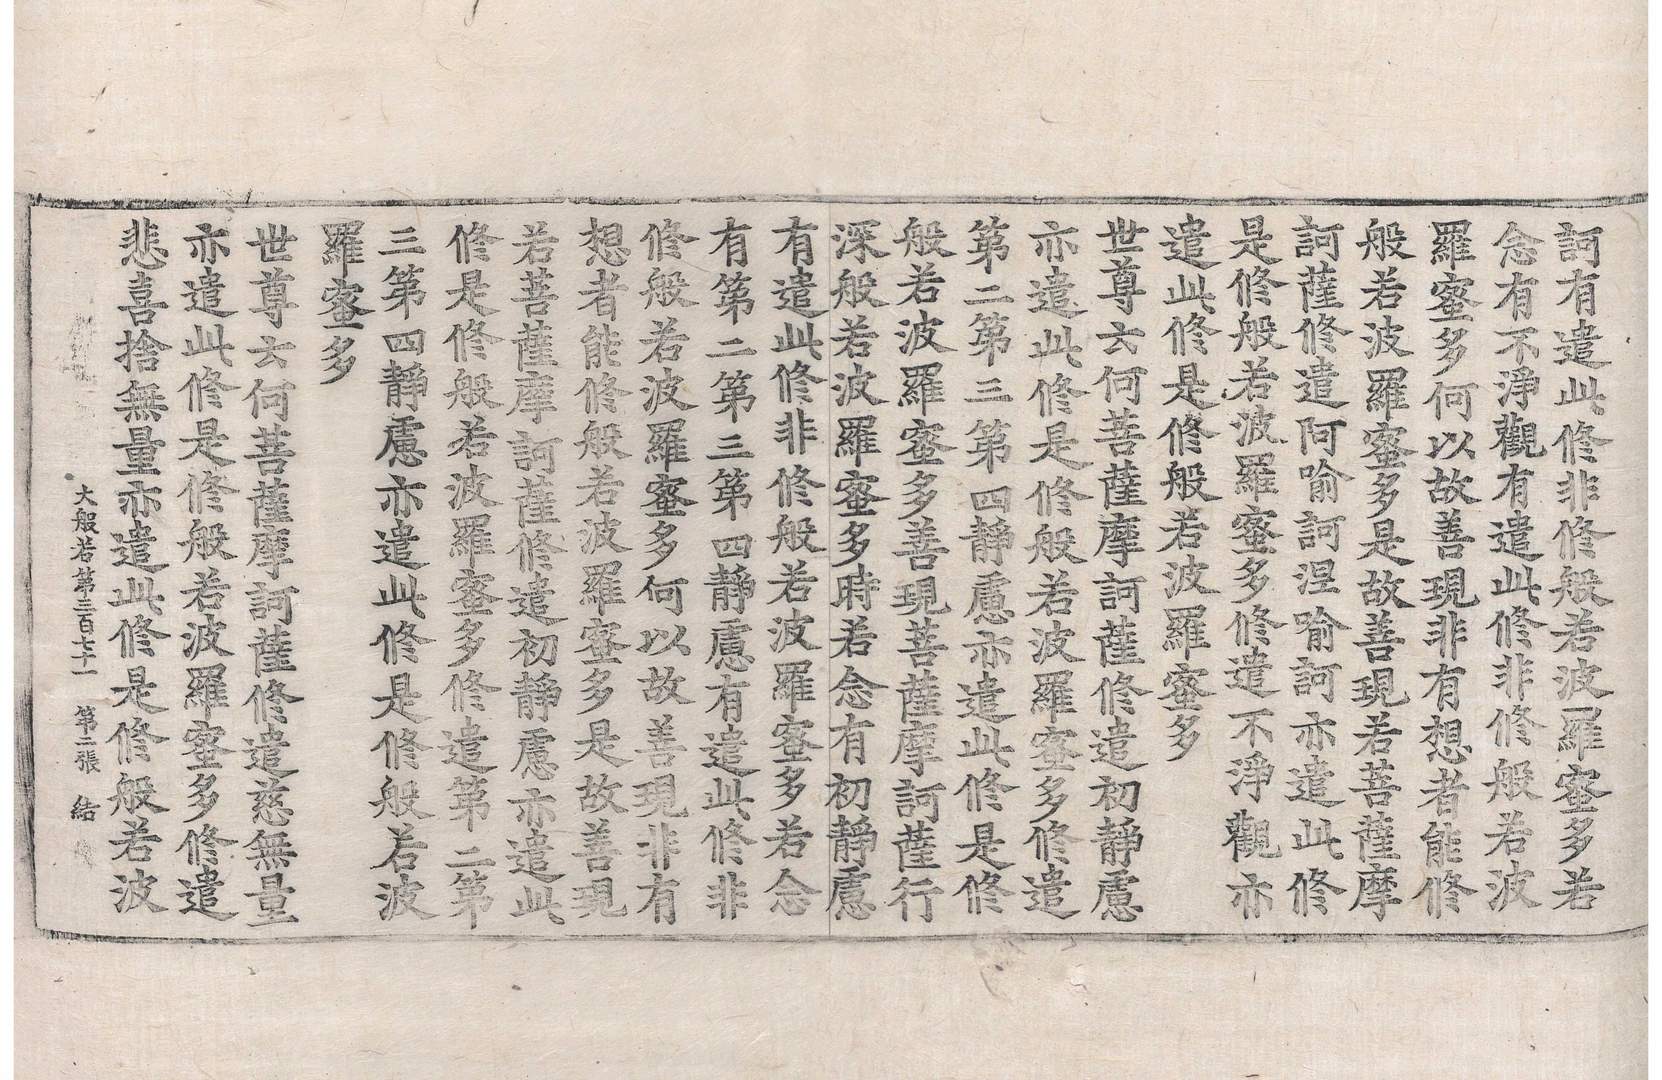 訶有遣此修非修般若波羅蜜多若
念有不淨觀有遣此修非修般若波
羅蜜多何以故善現非有想者能修
般若波羅蜜多是故善現若菩薩摩
訶薩修遣阿喻訶涅喻訶亦遣此修
是修般若波羅蜜多修遣不淨觀亦
遣此修是修般若波羅蜜多
世尊云何菩薩摩訶薩修遣初靜慮
亦遣此修是修般若波羅蜜多修遣
第二第三第四靜慮亦遣此修是修
般若波羅蜜多善現菩薩摩訶薩行
深般若波羅蜜多時若念有初靜慮
有遣此修非修般若波羅蜜多若念
有第二第三第四靜慮有遣此修非
修般若波羅蜜多何以故善現非有
想者能修般若波羅蜜多是故善現
若菩薩摩訶薩修遣初靜慮亦遣此
修是修般若波羅蜜多修遣第二第
三第四靜慮亦遣此修是修般若波
羅蜜多
世尊云何菩薩摩訶薩修遣慈無量
亦遣此修是修般若波羅蜜多修遣
悲喜捨無量亦遣此修是修般若波
大般若第三百七十一 第二張 結